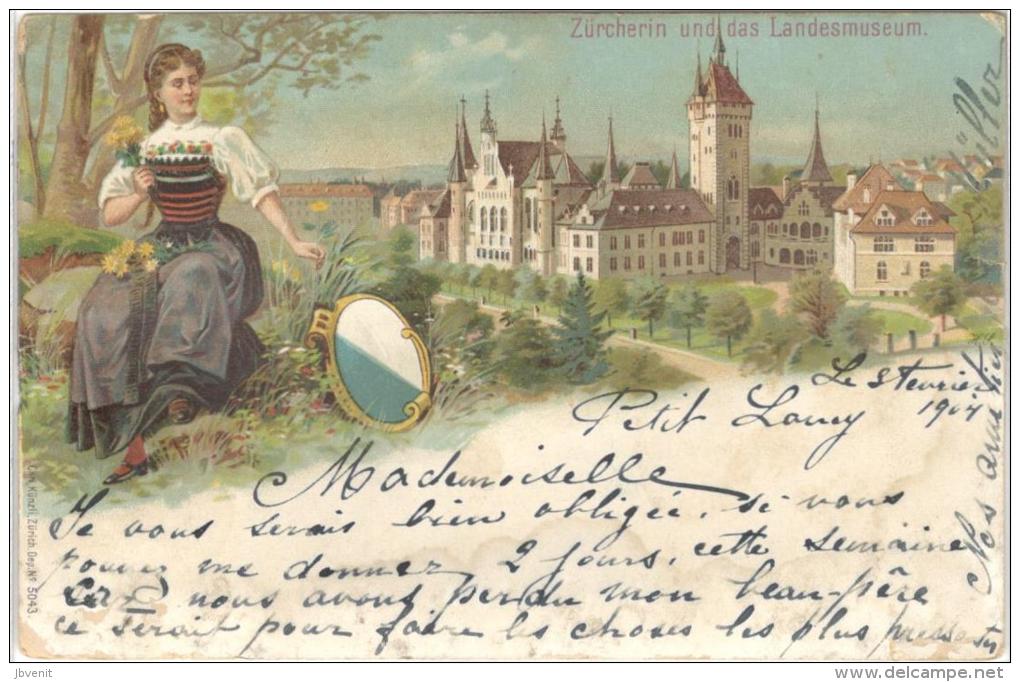 Zürcherin und das Landesmuseum.
Le 3 Fevrier
1904
Petit Lancy
Mademoiselle
Je vous serais bien obligée, si vous
pouvez me donner 2 jours, cette semaine
Car nous avons perdu mon beau-père
ce serait pour faire les choses les plus pressantes
Nos
Künzli, Zürich. Dep. No 5043.
jbvenit
www.delcampe.net